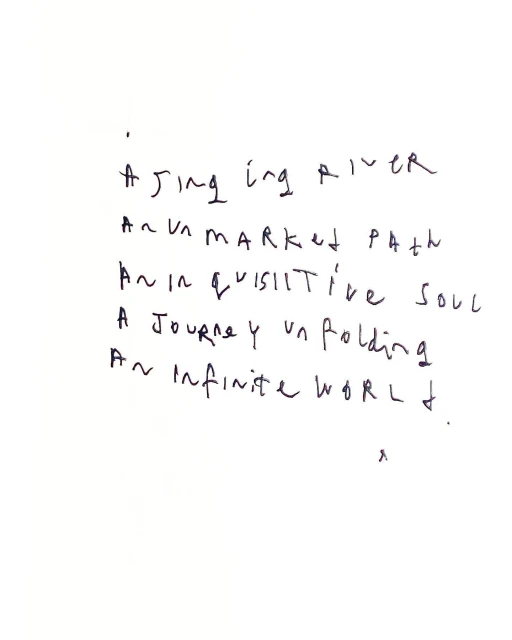 A Singing RIVER
An UnMARKed PAth
An InQUISIITive SOUL
A JOURNeY Unfolding
An Infinite WORLd.